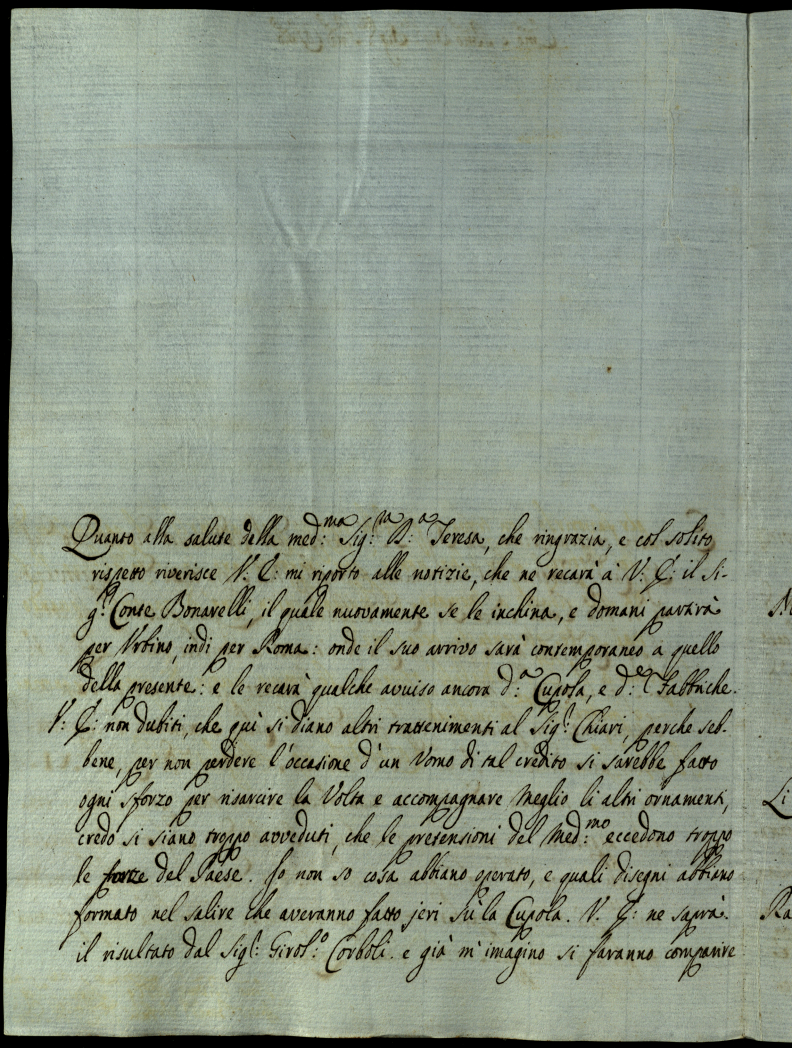 Quanto alla salute della med:ma Sig:ra D:a Teresa, che ringrazia, e col solito
rispetto riverisce V: E: mi riporto alle notizie, che ne recarà à V: E: il Si-
g:r Conte Bonarelli, il quale nuovamente se le inchina, e domani partirà
per Urbino, indi per Roma: onde il suo arrivo sarà contemporaneo a quello
della presente: e le recarà qualche avviso ancora d:a Cupola, e d:e Fabbriche.
V: E: non dubiti, che quì si diano altri trattenimenti al Sig:r Chiari, perche seb-
bene, per non perdere l'occasione d'un Uomo di tal credito si sarebbe fatto
ogni sforzo per risarcire la Volta e accompagnare meglio li altri ornamenti,
credo si siano troppo avveduti, che le pretensioni del Med:mo eccedono troppo
le forze del Paese. Io non so cosa abbiano operato, e quali disegni abbiano
formato nel salire che averanno fatto jeri sù la Cupola. V. E: ne saprà
il risultato dal Sig:r Girol:o Corboli. e già m'imagino si faranno comparire
Li
Ra